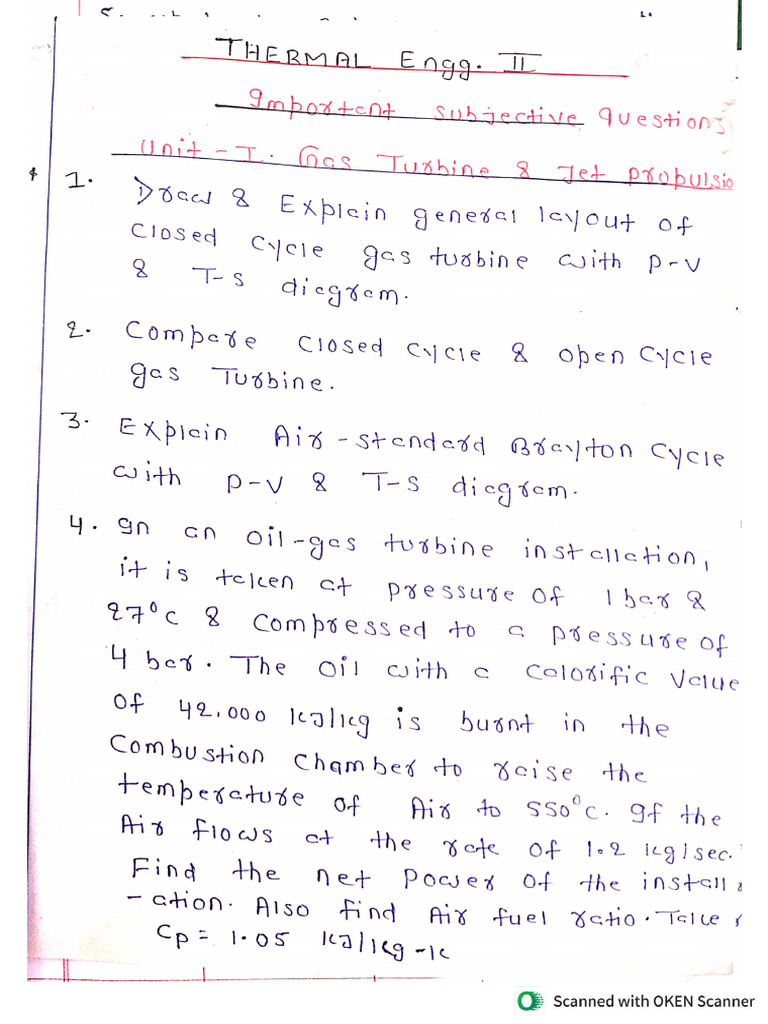 THERMAL Engg. II
Important subjective questions
Unit - I. Gas Turbine & Jet propulsio
1. Draw & Explain general layout of
closed cycle gas turbine with P-V
& T-S diagram.
2. Compare closed cycle & open cycle
gas Turbine.
3. Explain Air-standard Brayton cycle
with P-V & T-S diagram.
4. In an oil-gas turbine installation,
it is taken at pressure of 1 bar &
27°C & compressed to a pressure of
4 bar. The oil with a calorific value
of 42,000 KJ/Kg is burnt in the
Combustion chamber to raise the
temperature of Air to 550°C. If the
Air flows at the rate of 1.2 Kg/sec.
Find the net power of the install
-ation. Also find Air fuel ratio. Take
Cp = 1.05 KJ/Kg-K
Scanned with OKEN Scanner